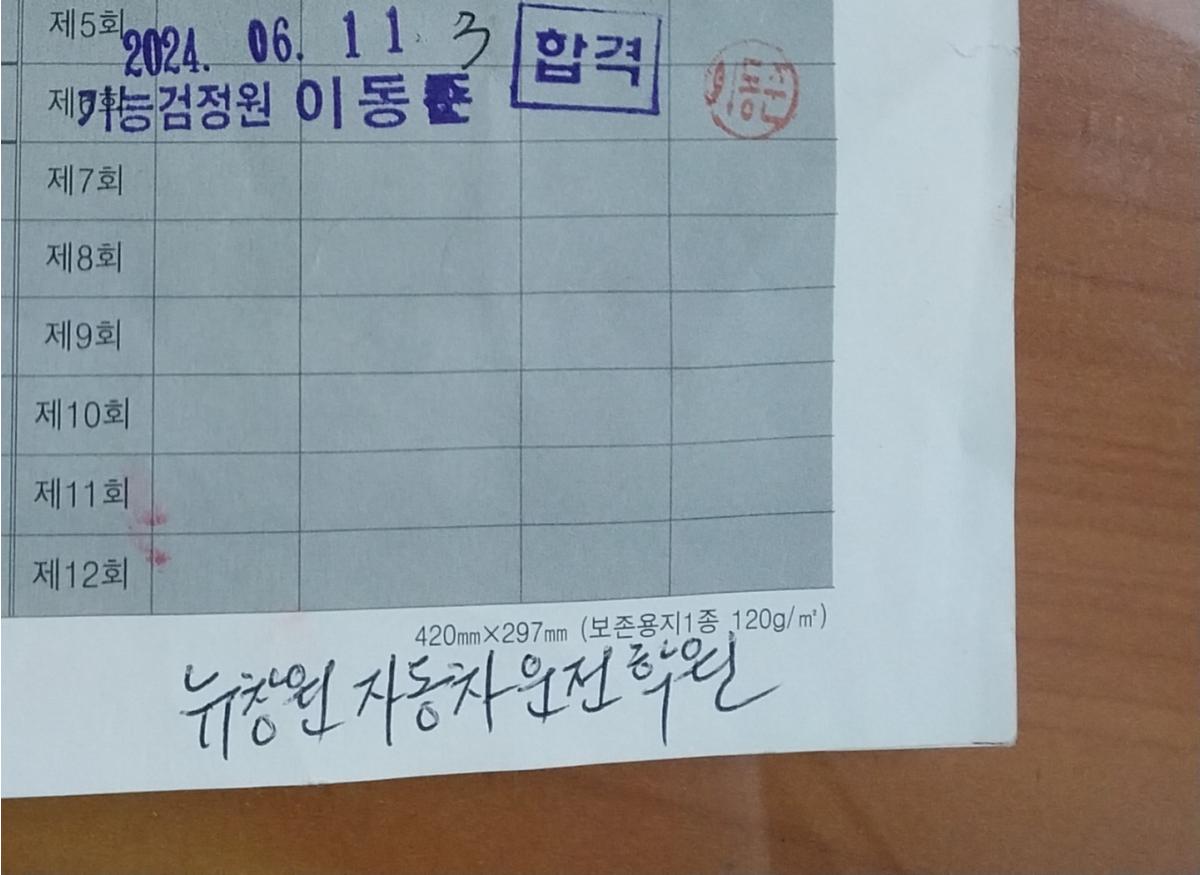 제5회 2024. 06. 11 3 합격
제6회 기능검정원 이동준
제7회
제8회
제9회
제10회
제11회
제12회
420mm×297mm (보존용지1종 120g/㎡)
뉴창원 자동차운전학원